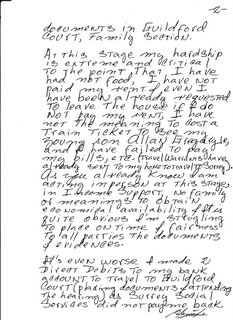 -2-
documents in Guildford
Court, Family Section.
At this stage my hardship
is extreme and critical
to the point, that I have
had not food, I have not
paid my rent & even I
have been already requested
to leave the house if I do
not pay my rent, I have
not the meaning to cost a
train ticket to see my
young son Allan
and I have failed to pay
my bills, etc. (travel wardens have
already sent to my home to to Surrey)
As you already know I am
acting in person at this stage
in Income Support, no family
or meanings to obtain
economical availability & it is
quite obvious I'm struggling
to place on time & fairness
to all parties the documents
& evidences.
It's even worse & made 2
Direct Debits to my bank
account to travel to Guildford
Court (placing documents & attending
the hearing) as Surrey Social
Services did not pay me back.